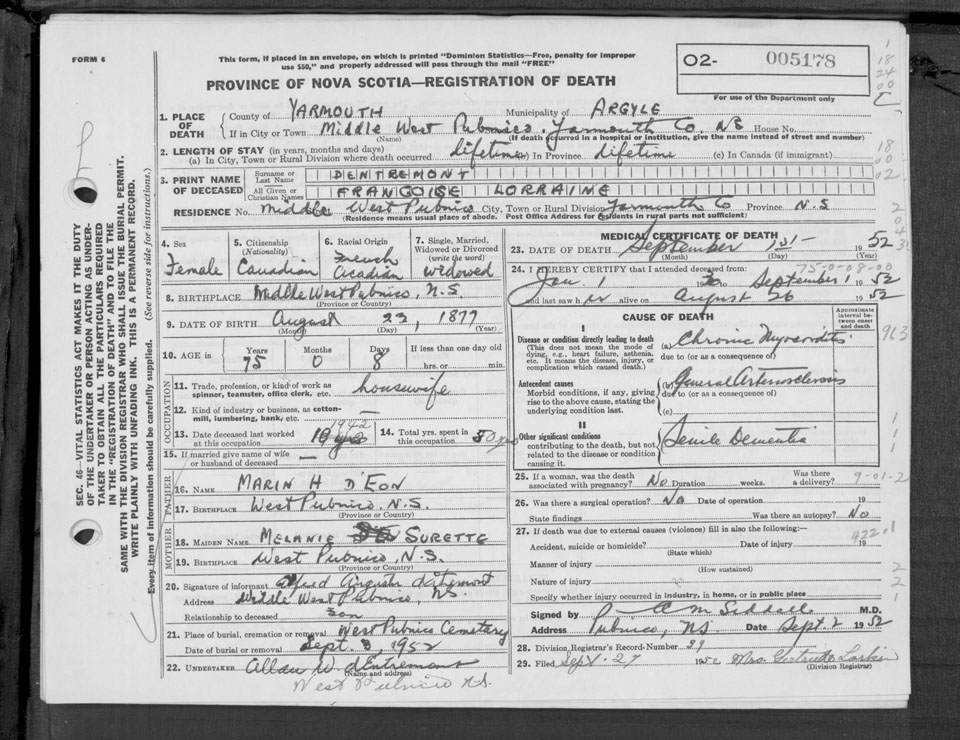 FORM 6
This form, if placed in an envelope, on which is printed "Dominion Statistics—Free, penalty for improper
use $50," and properly addressed will pass through the mail "FREE"
PROVINCE OF NOVA SCOTIA—REGISTRATION OF DEATH
02- 005178
For use of the Department only
1. PLACE OF DEATH County of YARMOUTH Municipality of ARGYLE
If in City or Town Middle West Pubnico, Yarmouth Co. NS House No.
(Name) (If death occurred in a hospital or institution, give the name instead of street and number)
2. LENGTH OF STAY (in years, months and days)
(a) In City, Town or Rural Division where death occurred lifetime (b) In Province lifetime (c) In Canada (if immigrant)
3. PRINT NAME OF DECEASED Surname or Last Name DENTREMONT
All Given or Christian Names FRANCOISE LORRAINE
RESIDENCE No. Middle West Pubnico City, Town or Rural Division Yarmouth Co Province N.S
(Residence means usual place of abode. Post Office Address for residents in rural parts not sufficient)
4. Sex Female
5. Citizenship (Nationality) Canadian
6. Racial Origin French Acadian
7. Single, Married, Widowed or Divorced (write the word) Widowed
8. BIRTHPLACE Middle West Pubnico, N.S.
(Province or Country)
9. DATE OF BIRTH August 23, 1877
(Month) (Day) (Year)
10. AGE in Years 75 Months 0 Days 8 If less than one day old hrs. or min.
OCCUPATION
11. Trade, profession, or kind of work as spinner, teamster, office clerk, etc. housewife
12. Kind of industry or business, as cotton-mill, lumbering, bank, etc. —
13. Date deceased last worked at this occupation 1942
14. Total yrs. spent in this occupation 50 yrs
15. If married give name of wife or husband of deceased —
FATHER
16. NAME MARIN H D'EON
17. BIRTHPLACE West Pubnico, N.S.
(Province or Country)
MOTHER
18. MAIDEN NAME MELANIE SURETTE
19. BIRTHPLACE West Pubnico, N.S.
(Province or Country)
20. Signature of informant Alfred Augustin dEntremont
Address Middle West Pubnico, NS.
Relationship to deceased Son
21. Place of burial, cremation or removal West Pubnico Cemetary
Date of burial or removal Sept. 3, 1952
22. UNDERTAKER Allan W. dEntremont
(Name and address)
West Pubnico N.S.
MEDICAL CERTIFICATE OF DEATH
23. DATE OF DEATH September 1st 1952
(Month) (Day) (Year)
75-0-08-00
24. I HEREBY CERTIFY that I attended deceased from:
Jan. 1 to September 1 1952
and last saw her alive on August 26 1952
CAUSE OF DEATH
Approximate interval between onset and death
I
Disease or condition directly leading to death (a) Chronic Myocarditis
(This does not mean the mode of dying, e.g., heart failure, asthenia, etc. It means the disease, injury, or complication which caused death.) due to (or as a consequence of)
Antecedent causes (b) General Arteriosclerosis
Morbid conditions, if any, giving rise to the above cause, stating the underlying condition last. due to (or as a consequence of)
(c)
II
Other significant conditions Senile Dementia
contributing to the death, but not related to the disease or condition causing it.
25. If a woman, was the death associated with pregnancy? No Duration weeks. Was there a delivery? 9-01-2
26. Was there a surgical operation? No Date of operation 19
State findings Was there an autopsy? No
27. If death was due to external causes (violence) fill in also the following:—
422.1
Accident, suicide or homicide? Date of injury 19
(State which)
Manner of injury
(How sustained)
Nature of injury
Specify whether injury occurred in industry, in home, or in public place
Signed by A M Siddall M.D.
Address Pubnico, NS Date Sept. 2 1952
28. Division Registrar's Record-Number 39
29. Filed Sept. 27 1952 Mrs. Gertrude Larkin
(Division Registrar)
SEC. 46—VITAL STATISTICS ACT MAKES IT THE DUTY
OF THE UNDERTAKER OR PERSON ACTING AS UNDER-
TAKER TO OBTAIN ALL THE PARTICULARS REQUIRED
IN THE "REGISTRATION OF DEATH" AND TO FILE THE
SAME WITH THE DIVISION REGISTRAR WHO SHALL ISSUE THE BURIAL PERMIT.
WRITE PLAINLY WITH UNFADING INK. THIS IS A PERMANENT RECORD.
Every item of Information should be carefully supplied. (See reverse side for instructions.)